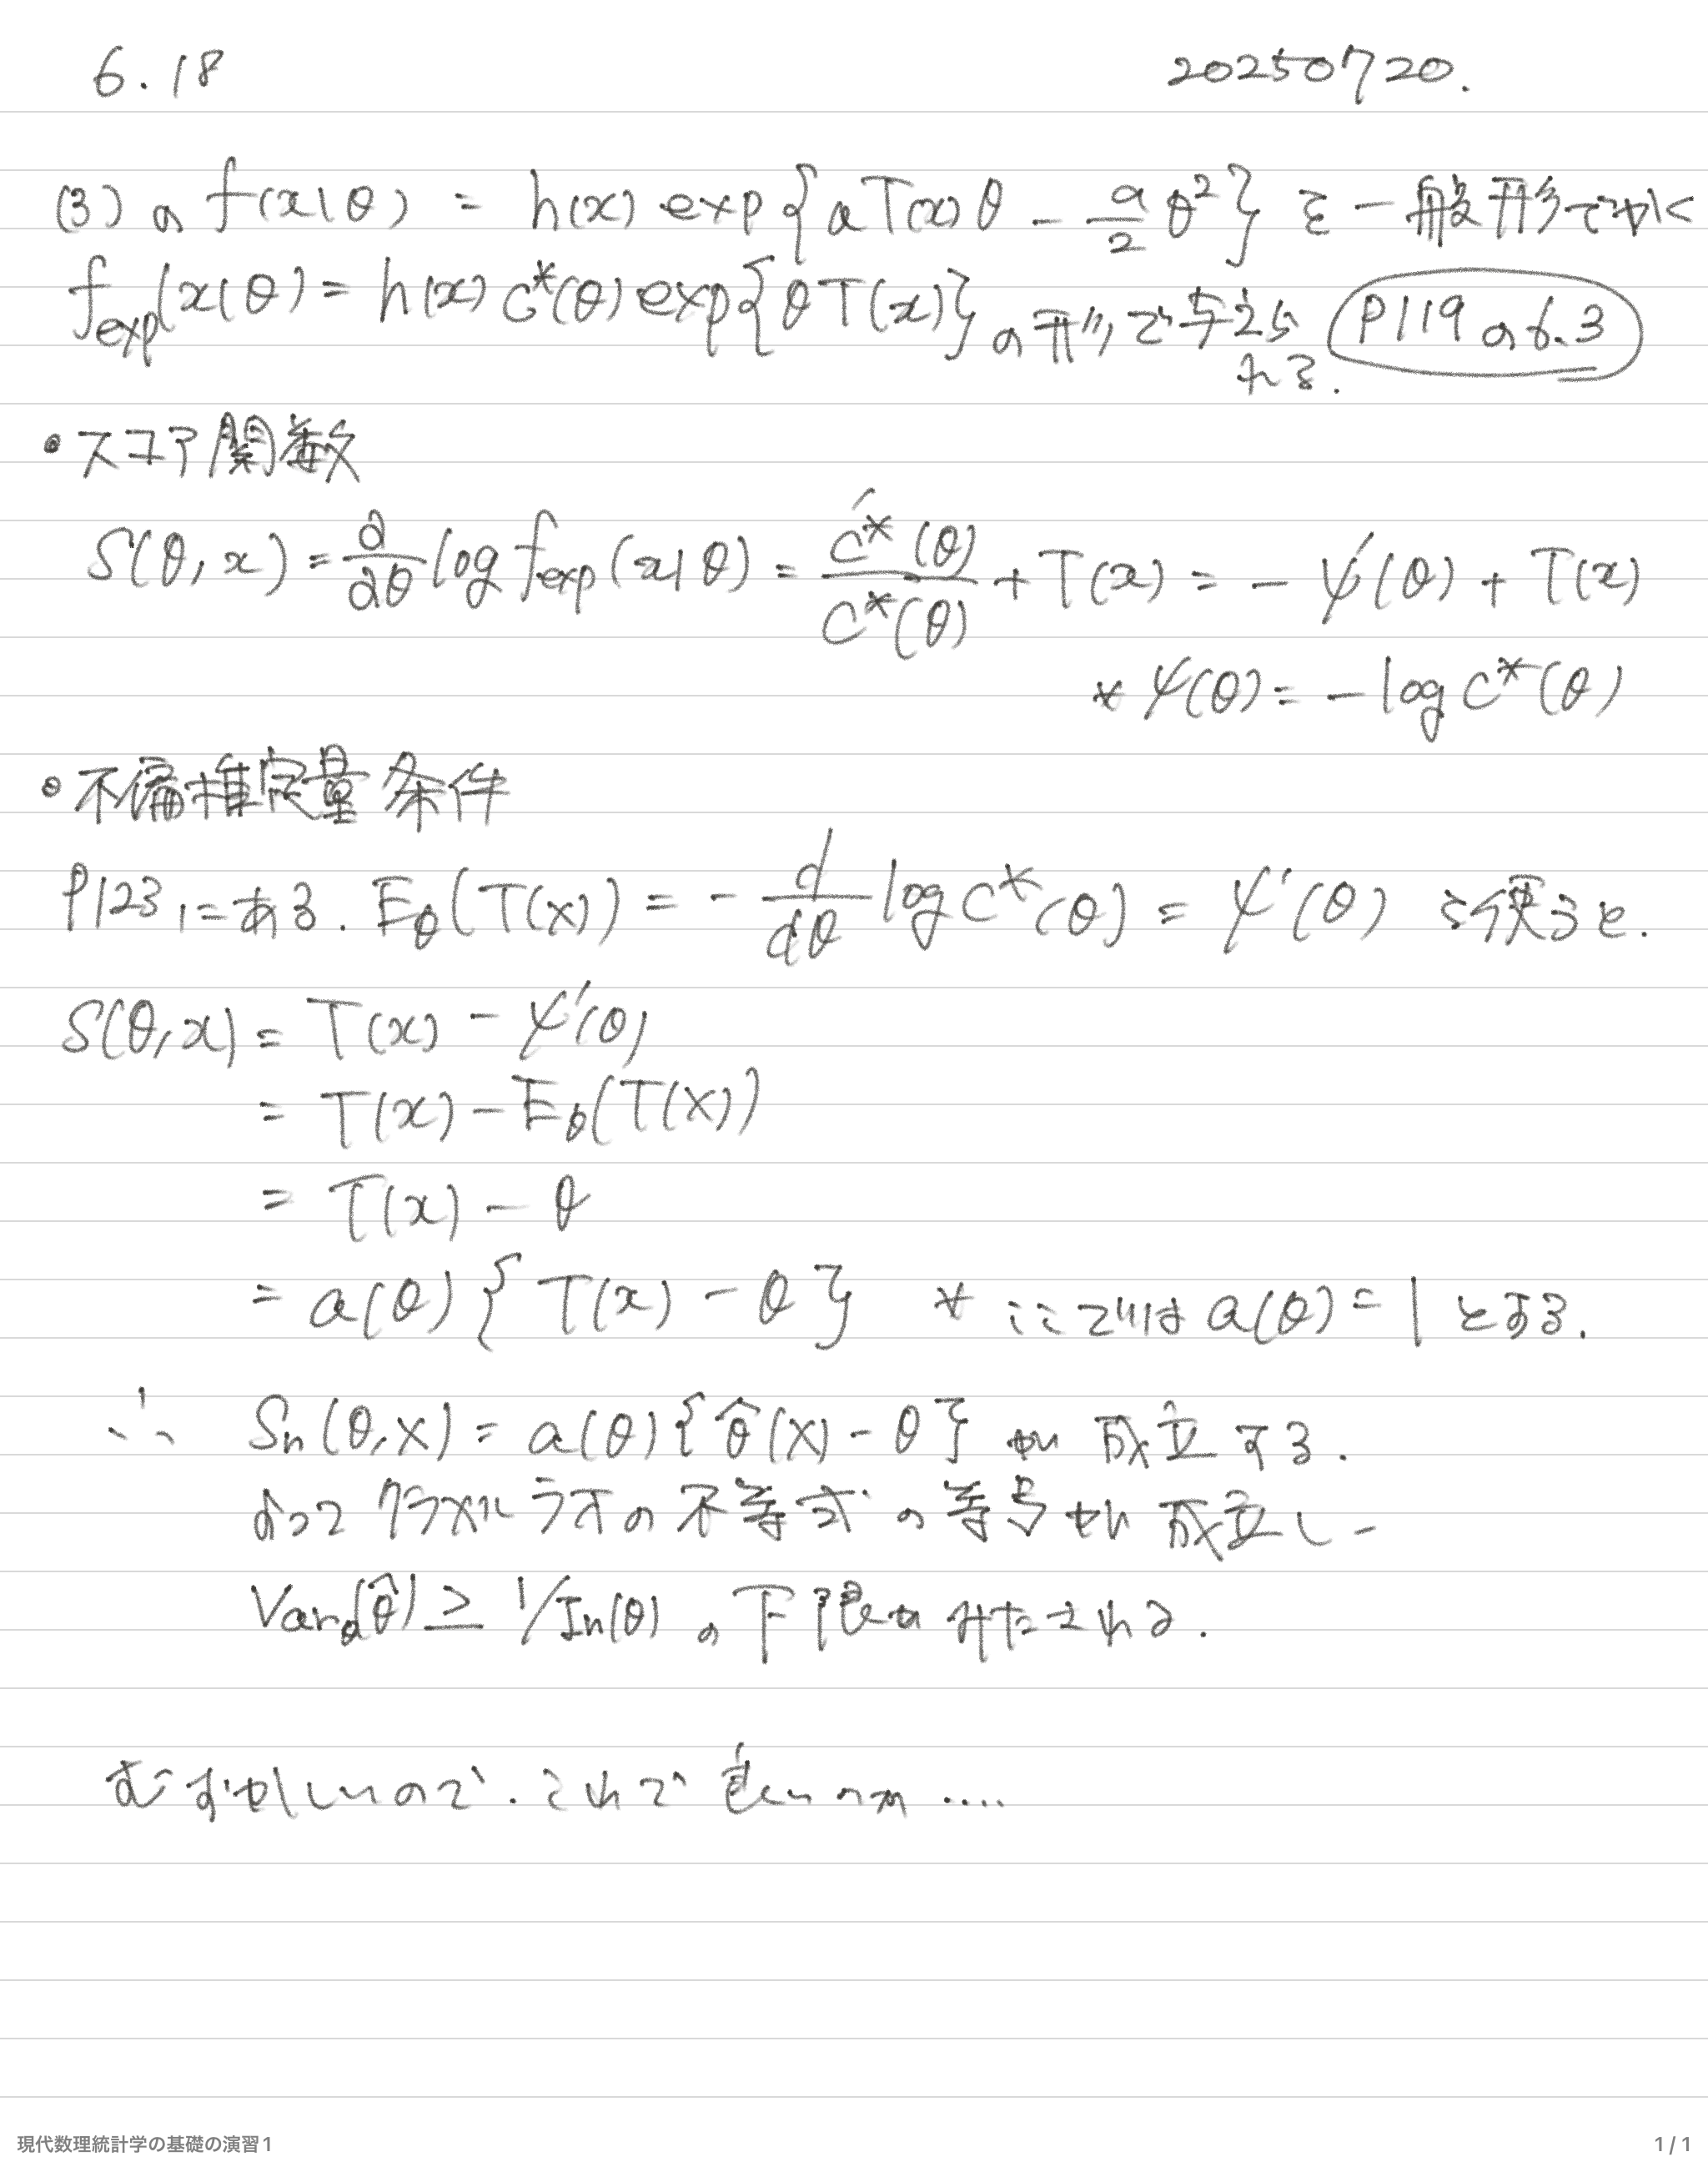 6.18 20250720.
(3) の f(x|θ) = h(x) exp{aT(x)θ - a/2 θ²} を一般形でかく
f_exp(x|θ) = h(x) C*(θ) exp{θT(x)} の形で与えられる. P119の6.3
・スコア関数
S(θ, x) = ∂/∂θ log f_exp(x|θ) = C*'(θ)/C*(θ) + T(x) = - ψ'(θ) + T(x)
* ψ(θ) = - log C*(θ)
・不偏推定量条件
P123にある. E_θ(T(X)) = - d/dθ log C*(θ) = ψ'(θ) を使うと.
S(θ, x) = T(x) - ψ'(θ)
= T(x) - E_θ(T(X))
= T(x) - θ
= a(θ) { T(x) - θ } * ここでは a(θ) = 1 とする.
∴ S_n(θ, X) = a(θ) {θ̂(X) - θ} が成立する.
よってクラメル ラオの不等式の等号が成立し-
Var_θ(θ̂) ≥ 1/I_n(θ) の下限がみたされる.
むずかしいので. これで良いのか ....
現代数理統計学の基礎の演習1 1 / 1